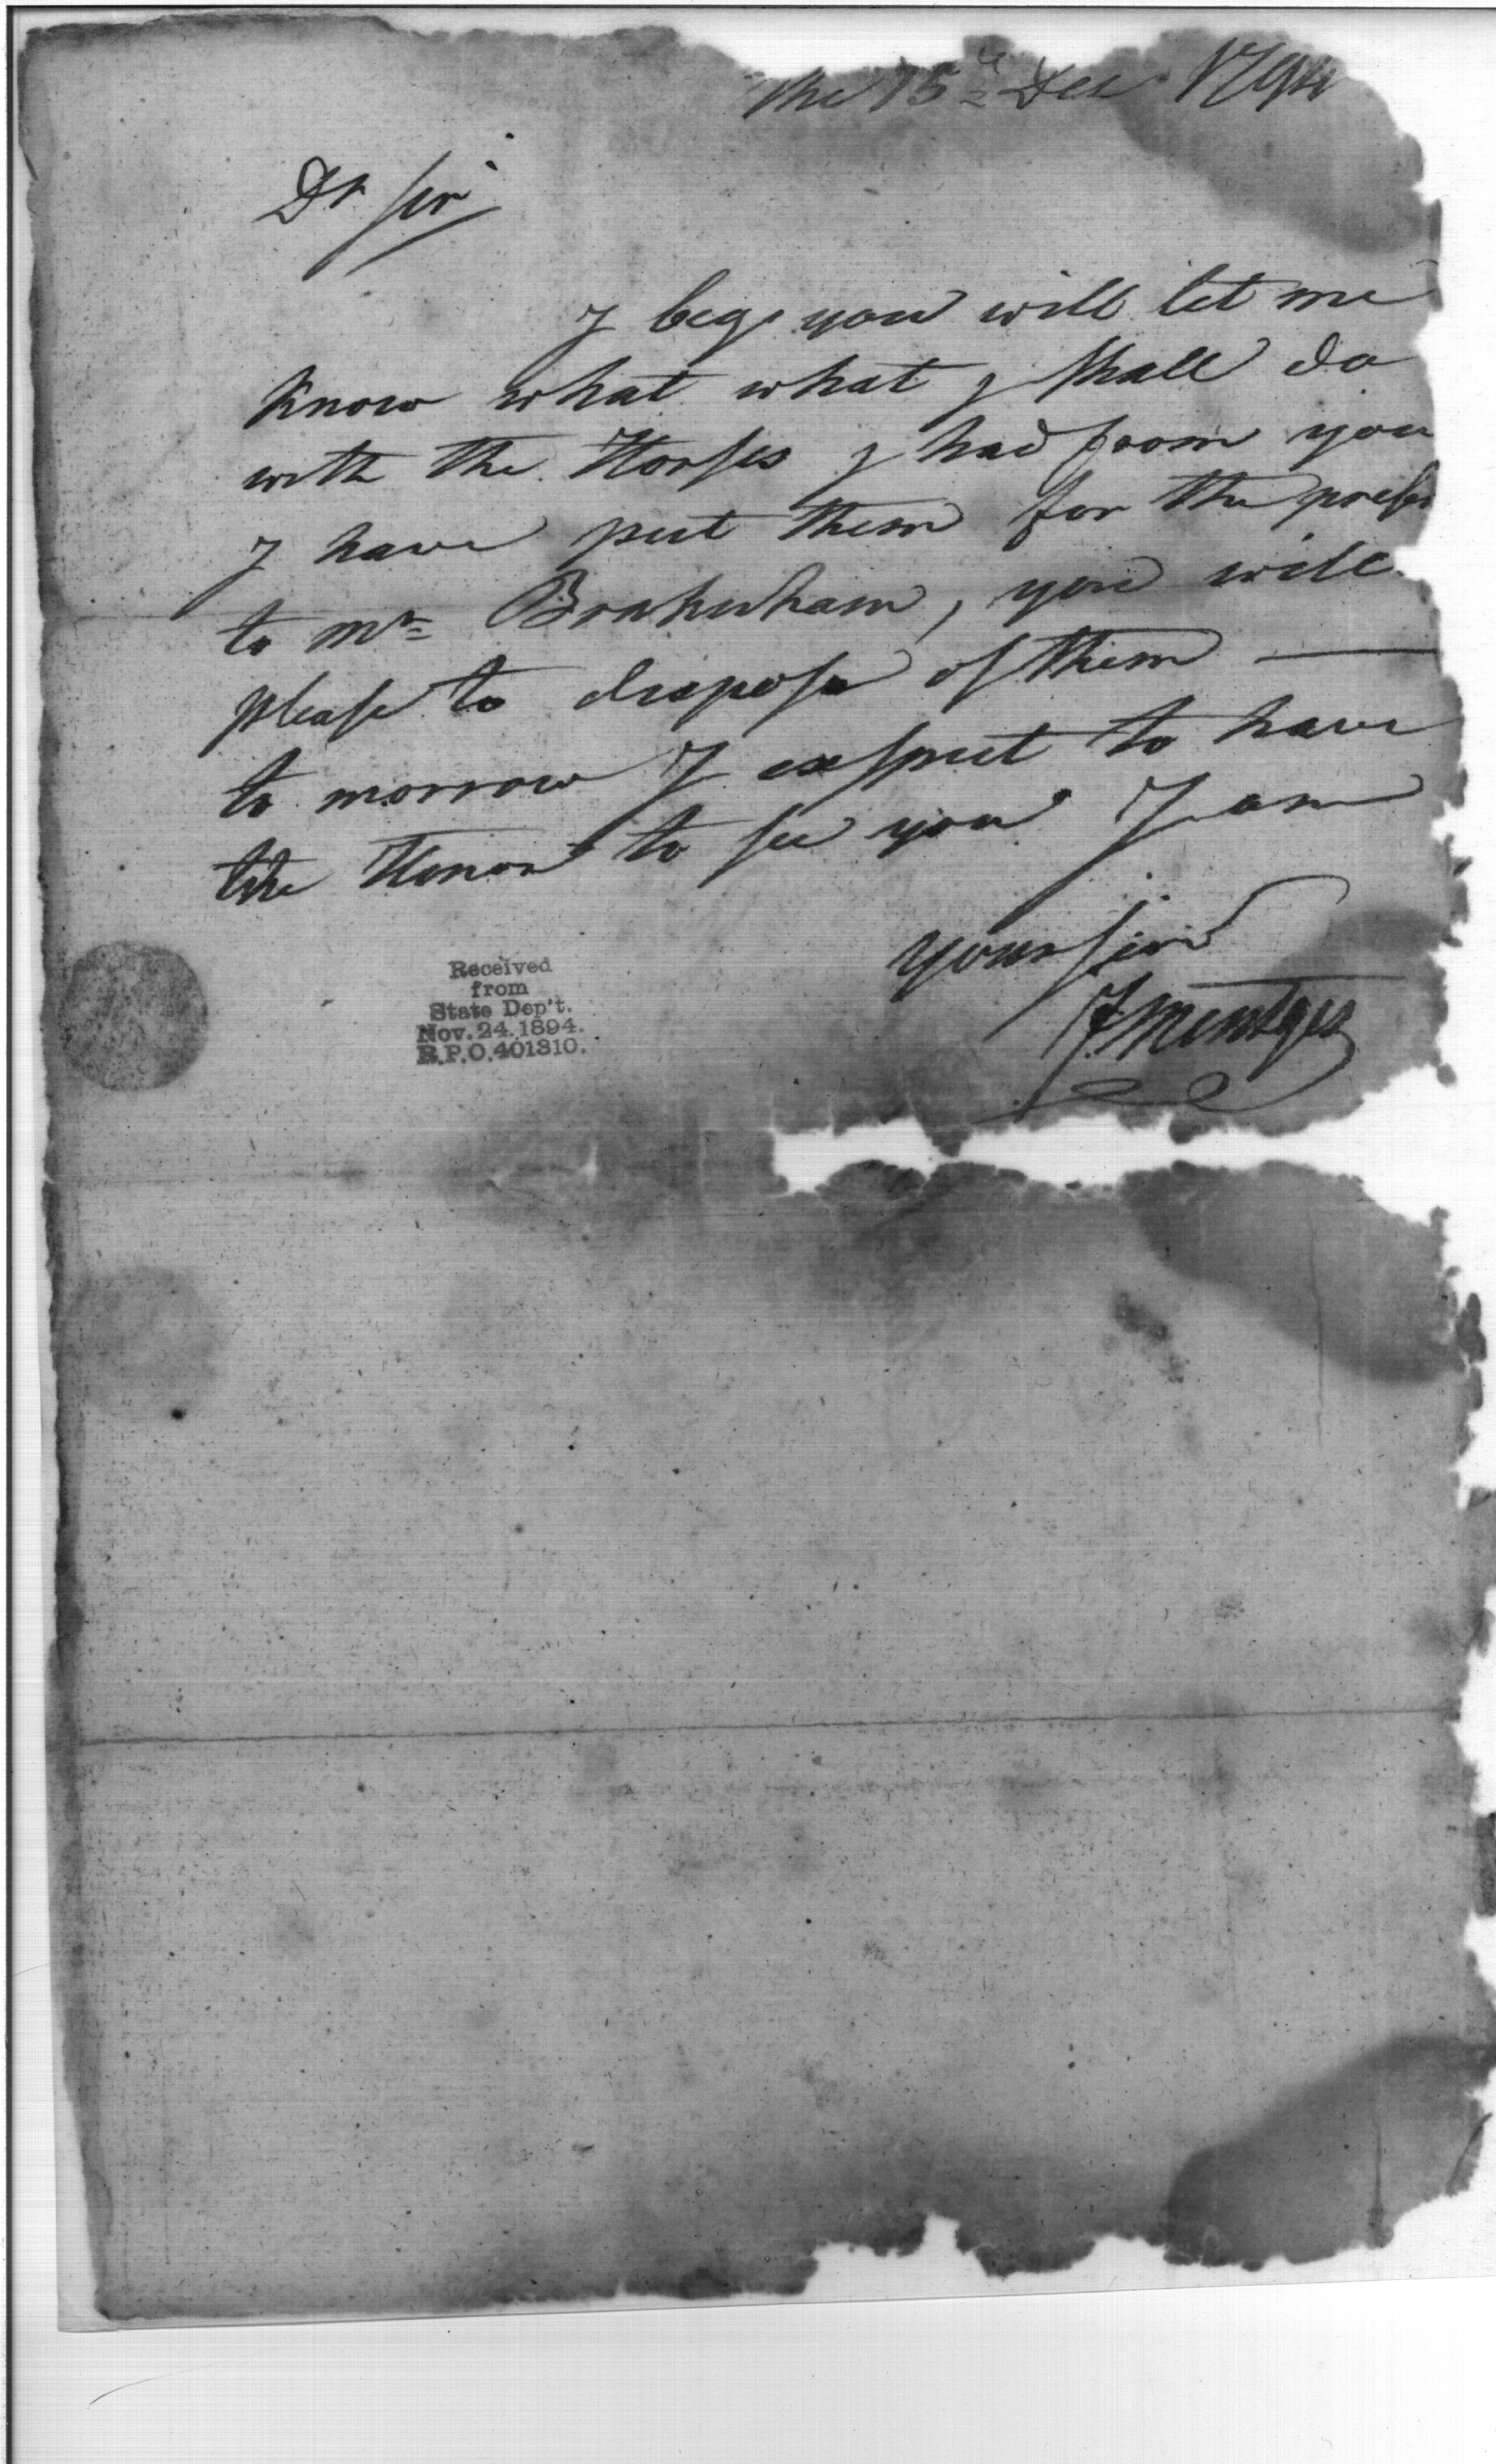 the 15th Dec 179
Dr Sir
I beg you will let me
Know what what I shall do
with the Horses I had from you
I have put them for the presen
to Mr
, you will
please to dispose of them —
to morrow I exspect to have
the Honor to see you I am
your Sir
F Mentges
Received
from
State Dep't.
Nov. 24. 1894.
R.P.O. 401310.